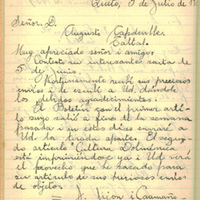 Quito, 5 de Julio de 19
Señor D.
Augusto Capdeville
Taltal.
Muy apreciado señor i amigo:
Contesto su interesante carta de
5 de Junio.
Oportunamente recibí sus preciosos
envíos i de escribí a Ud. dándole
los debidos agradecimientos.
El Boletín con el primer artí-
culo suyo salió a fines de la semana
pasada i en estos días enviaré a
Ud. la tirada aparte. El segundo
artículo "Cultura Dolménica"
está imprimiéndose ya i Ud. verá
el provecho que he sacado para
un artículo de sus preciosos envíos
de objetos.
J. Jijón i Caamaño